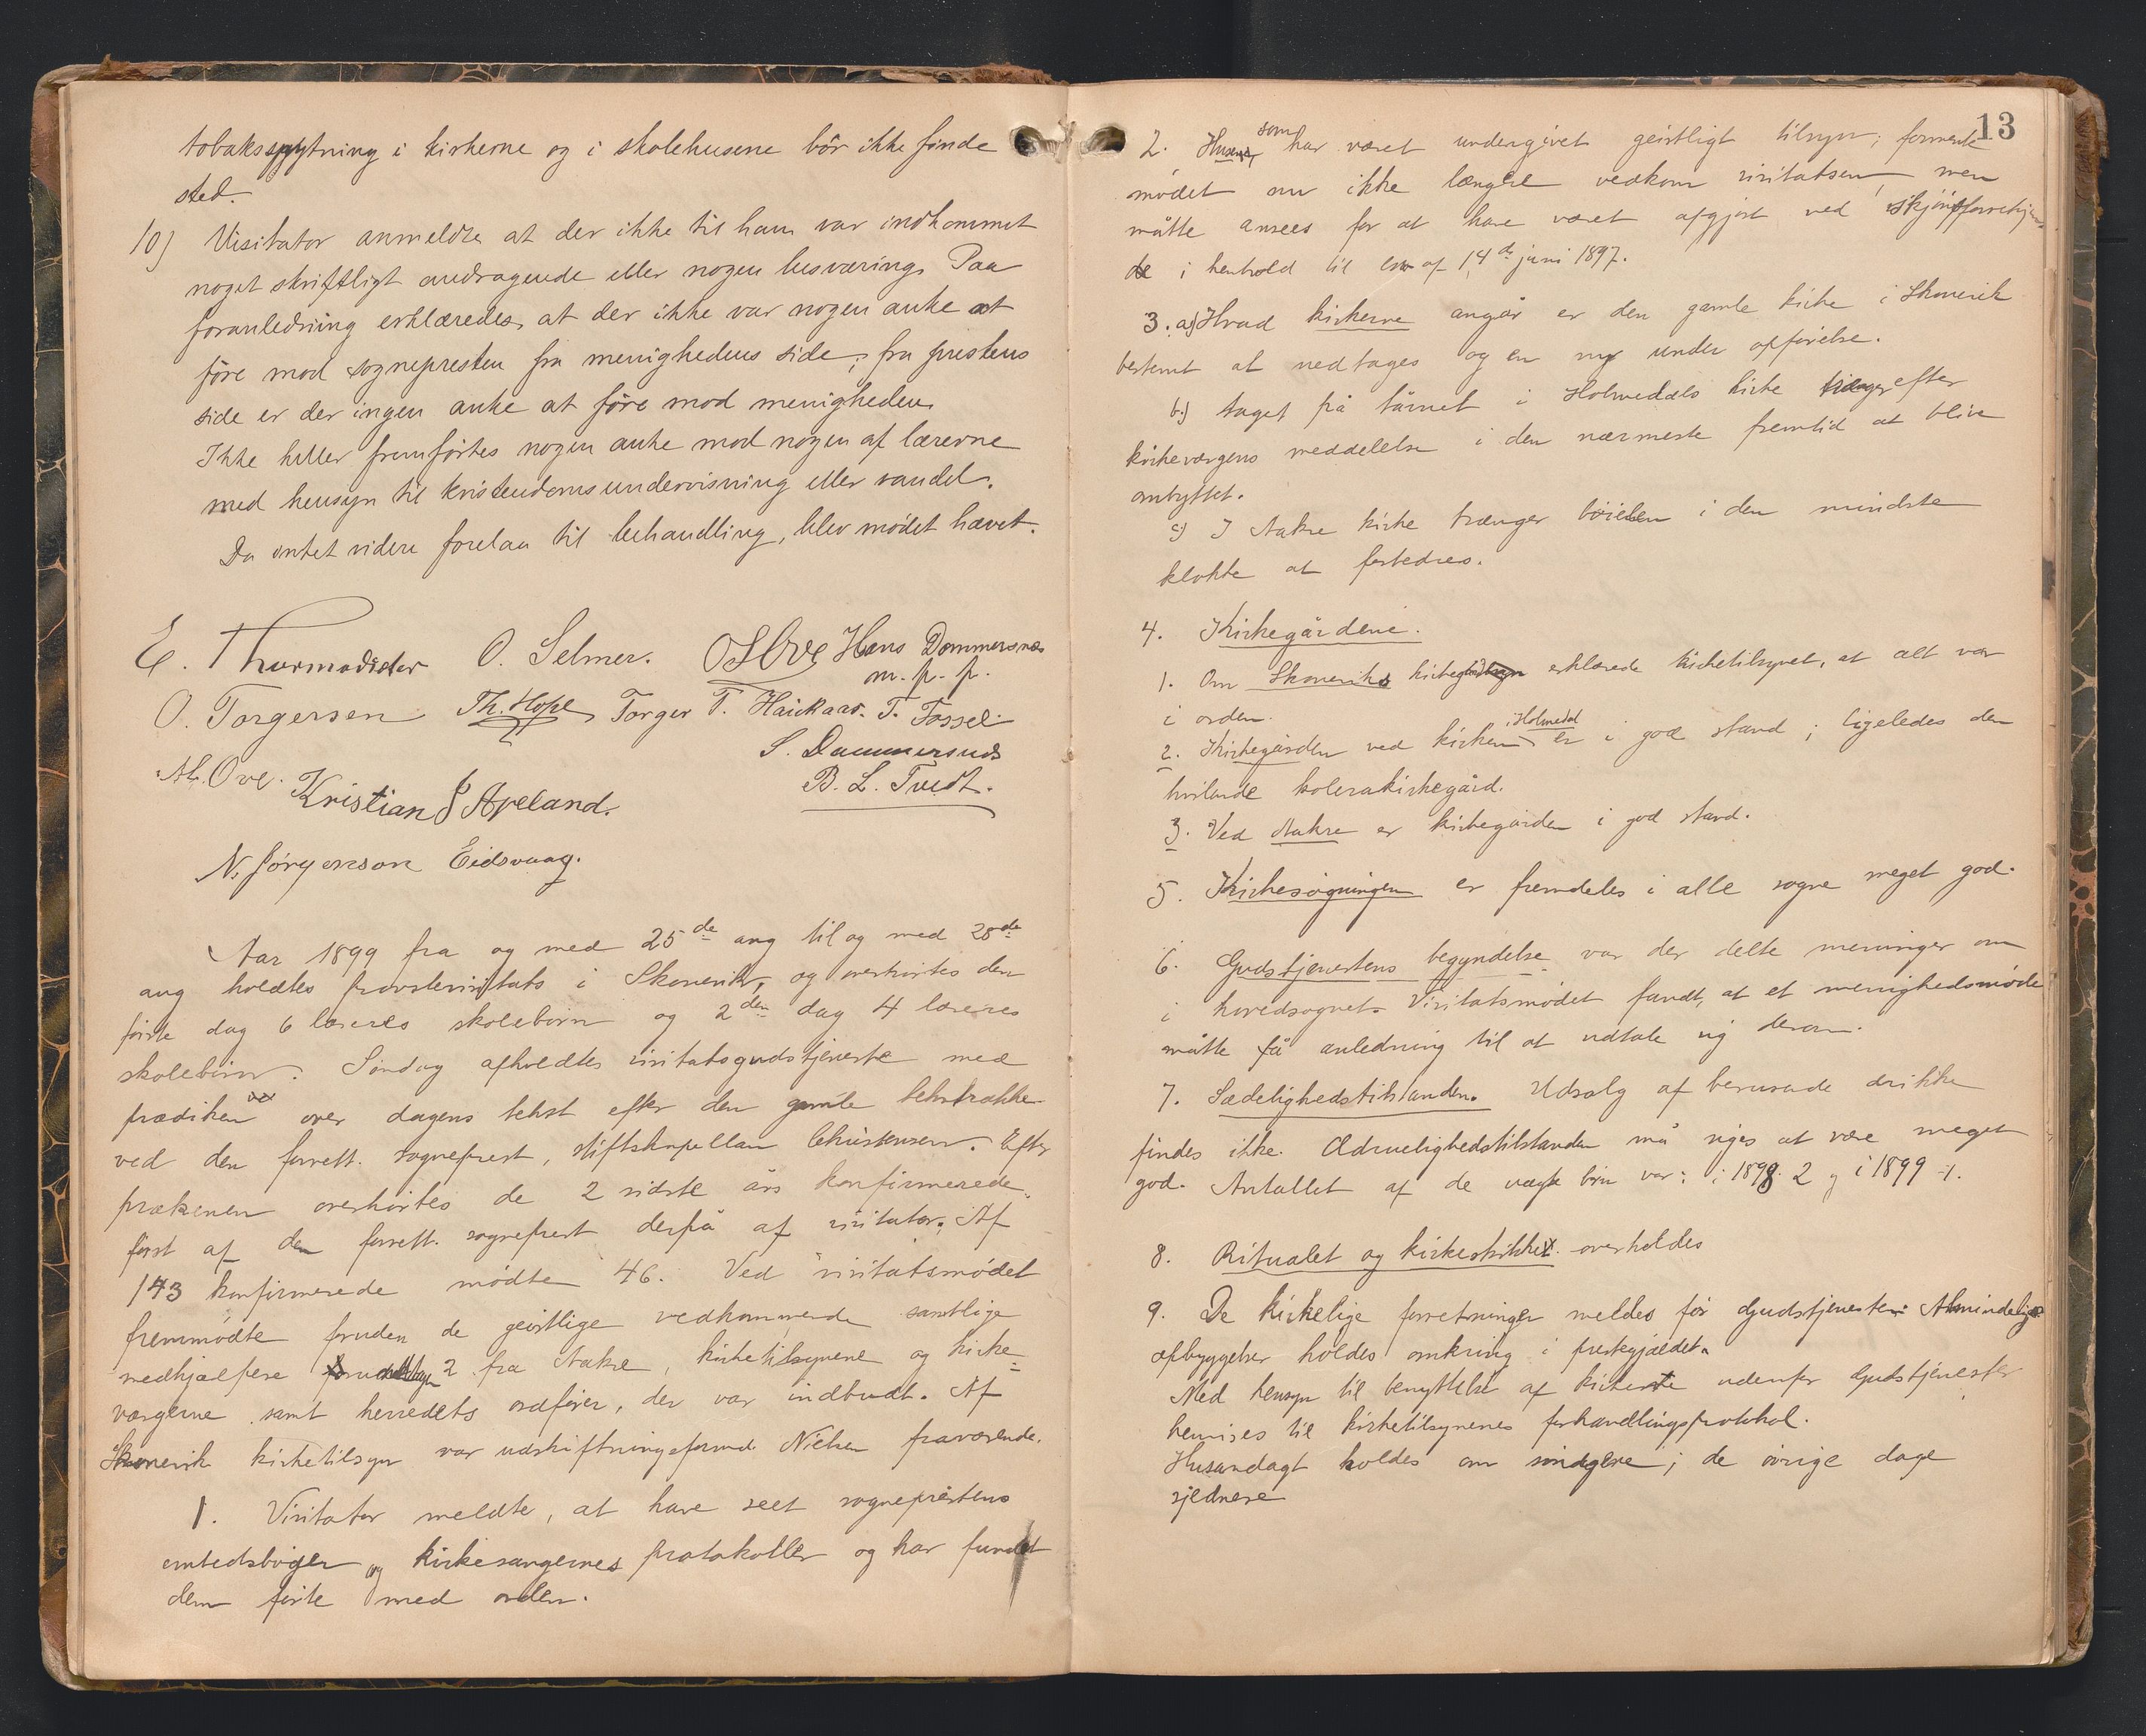 tobaksspytning i kirkerne og i skolehusene bör ikke finde
sted.
10) Visitator anmeldte at der ikke til ham var indkommet
noget skriftligt andragende eller nogen besværing. Paa
foranledning erklæredes, at der ikke var nogen anke at
före mod sognepresten fra menighedens side; fra prestens
side er der ingen anke at före mod menigheden.
Ikke heller fremförtes nogen anke mod nogen af lærerne
med hensyn til kristendomsundervisning eller vandel.
Da intet videre forelaa til behandling, blev mödet hævet.
E. Thormodsæter O. Selmer. O S Ove Hans Dommersnes
m. p. p.
O. Torgersen Th. Hope Torger T. Haickaas. T. Fossel.
S. Dammersnes
Al. Ove. Kristian J Apeland. B. L. Tvedt.
N. Jörgenson Eidsvaag.
Aar 1899 fra og med 25de aug til og med 28de
aug holdtes provstevisitats i Skonevik, og overhörtes den
förste dag 6 læreres skolebörn og 2den dag 4 læreres
skolebörn. Söndag afholdtes visitatsgudstjeneste med
prædiken over dagens tekst efter den gamle tekstrække
ved den forrett. sogneprest, stiftskapellan Christensen. Efter
prækenen overhörtes de 2 sidste års konfirmerede,
först af den forrett. sogneprest derpå af visitator. Af
143 konfirmerede mödte 46. Ved visitatsmödet
fremmödte foruden de geistlige vedkommende samtlige
medhjælpere 2 fra Aakre, kirketilsynene og kirke-
værgerne samt herredets ordförer, der var indbudt. Af
Skonevik kirketilsyn var udskiftningsformd. Nielsen fraværende.
1. Visitator meldte, at have seet sogneprestens
embedsböger og kirkesangernes protokoller og har fundet
dem förte med orden.
13
2. Husene som har været undergivet geistligt tilsyn; formente
mödet nu ikke længere vedkom visitatsen, men
måtte ansees for at have været afgjort ved
de i henhold til lov af 14de juni 1897.
3. a) Hvad kirkerne angår er den gamle kirke i Skonevik
bestemt at nedtages og en ny under opförelse.
b) taget på tårnet i Holmedals kirke trænger efter
kirkeværgens meddelelse i den nærmeste fremtid at blive
ombyttet.
c) I Aakre kirke trænger böielen i den mindste
klokke at forbedres.
4. Kirkegårdene.
1. Om Skoneviks erklærede kirketilsynet, at alt var
i orden.
2. Kirkegården ved kirken Holmedal er i god stand; ligeledes den
hvilende kolerakirkegård.
3. Ved Aakre er kirkegården i god stand.
5. Kirkesögningen er fremdeles i alle sogne meget god.
6. Gudstjenestens begyndelse var der delte meninger om
i hovedsognet. Visitatsmödet fandt, at et menighedsmöde
måtte få anledning til at udtale sig derom.
7. Sædelighedstilstanden. Udsalg af berusende drikke
findes ikke. Ædruelighedstilstanden må siges at være meget
god. Antallet af de uægte börn var: i 1898 2 og i 1899 1.
8. Ritualet og kirkeskikke overholdes
9. De kirkelige forretninger meldes för Gudstjenesten. Almindelige
opbyggelser holdes omkring i prestegjældet.
Med hensyn til benyttelse af kirkerne udenfor Gudstjenester
henvises til kirketilsynenes forhandlingsprotokol.
Husandagt holdes om söndagene; de övrige dage
sjeldnere